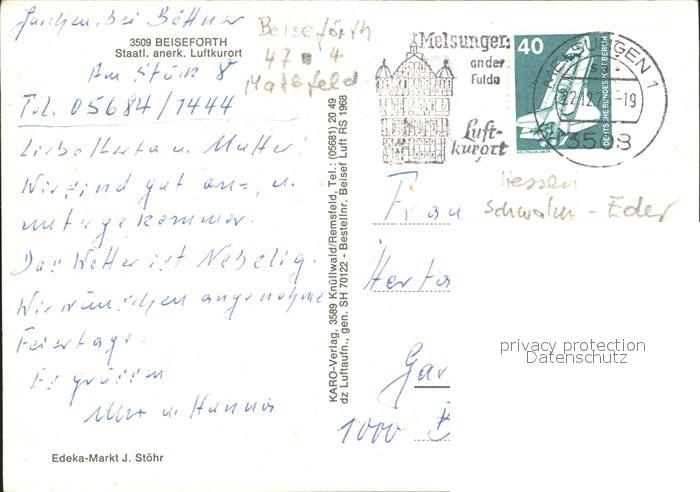 bei Böttner
3509 BEISEFÖRTH
Staatl. anerk. Luftkurort
Am Stück 8
Tel. 05684/1444
Liebe Herta u. Mutter!
Wir sind gut an-, u.
untergekommen.
Das Wetter ist Nebelig.
Wir wünschen angenehme
Feiertage.
Es grüssen
u. Hanna
Edeka-Markt J. Stöhr
KARO-Verlag, 3589 Knüllwald/Remsfeld, Tel.: (05681) 20 49
dz Luftaufn., gen. SH 70122 - Bestellnr. Beisef Luft RS 1968
Beiseförth
47 4
Malsfeld
Melsungen
an der
Fulda
Luft-
kurort
40
DEUTSCHE BUNDESPOST BERLIN
WELTRAUMLABOR
MELSUNGEN 1
22.12. -19
3508
Hessen
Schwalm - Eder
Frau
Herta
Gar
1000 B
privacy protection
Datenschutz